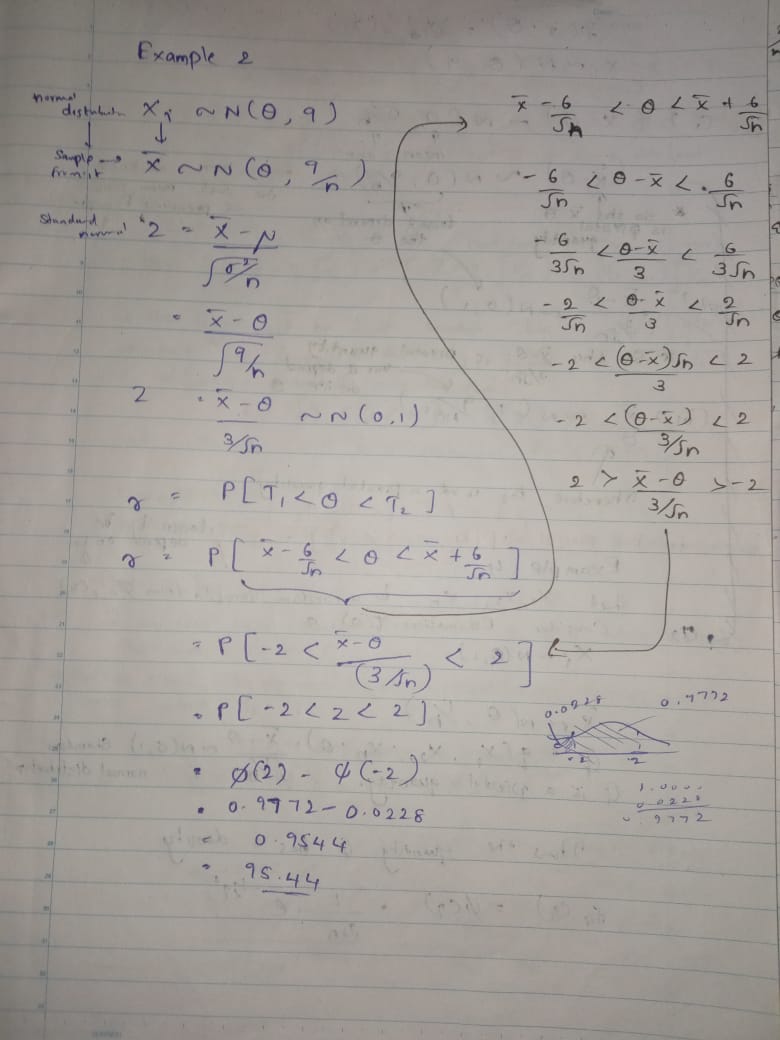 Example 2
normal distributn Xi ~ N(θ, 9)
↓ ↓
Sample from it → x̄ ~ N(θ, 9/n)
Standard normal Z = (x̄ - μ)/√(σ²/n)
= (x̄ - θ)/√(9/n)
Z = (x̄ - θ)/(3/√n) ~ N(0,1)
γ = P[T₁ < θ < T₂]
γ = P[x̄ - 6/√n < θ < x̄ + 6/√n]
= P[-2 < (x̄ - θ)/(3/√n) < 2]
= P[-2 < Z < 2]
= ϕ(2) - ϕ(-2)
= 0.9772 - 0.0228
= 0.9544
= 95.44
x̄ - 6/√n < θ < x̄ + 6/√n
-6/√n < θ - x̄ < 6/√n
-6/3√n < (θ - x̄)/3 < 6/3√n
-2/√n < (θ - x̄)/3 < 2/√n
-2 < (θ - x̄)√n/3 < 2
-2 < (θ - x̄)/(3/√n) < 2
2 > (x̄ - θ)/(3/√n) > -2
0.0228 0.9772
-2 2
1.0000
0.0228
0.9772